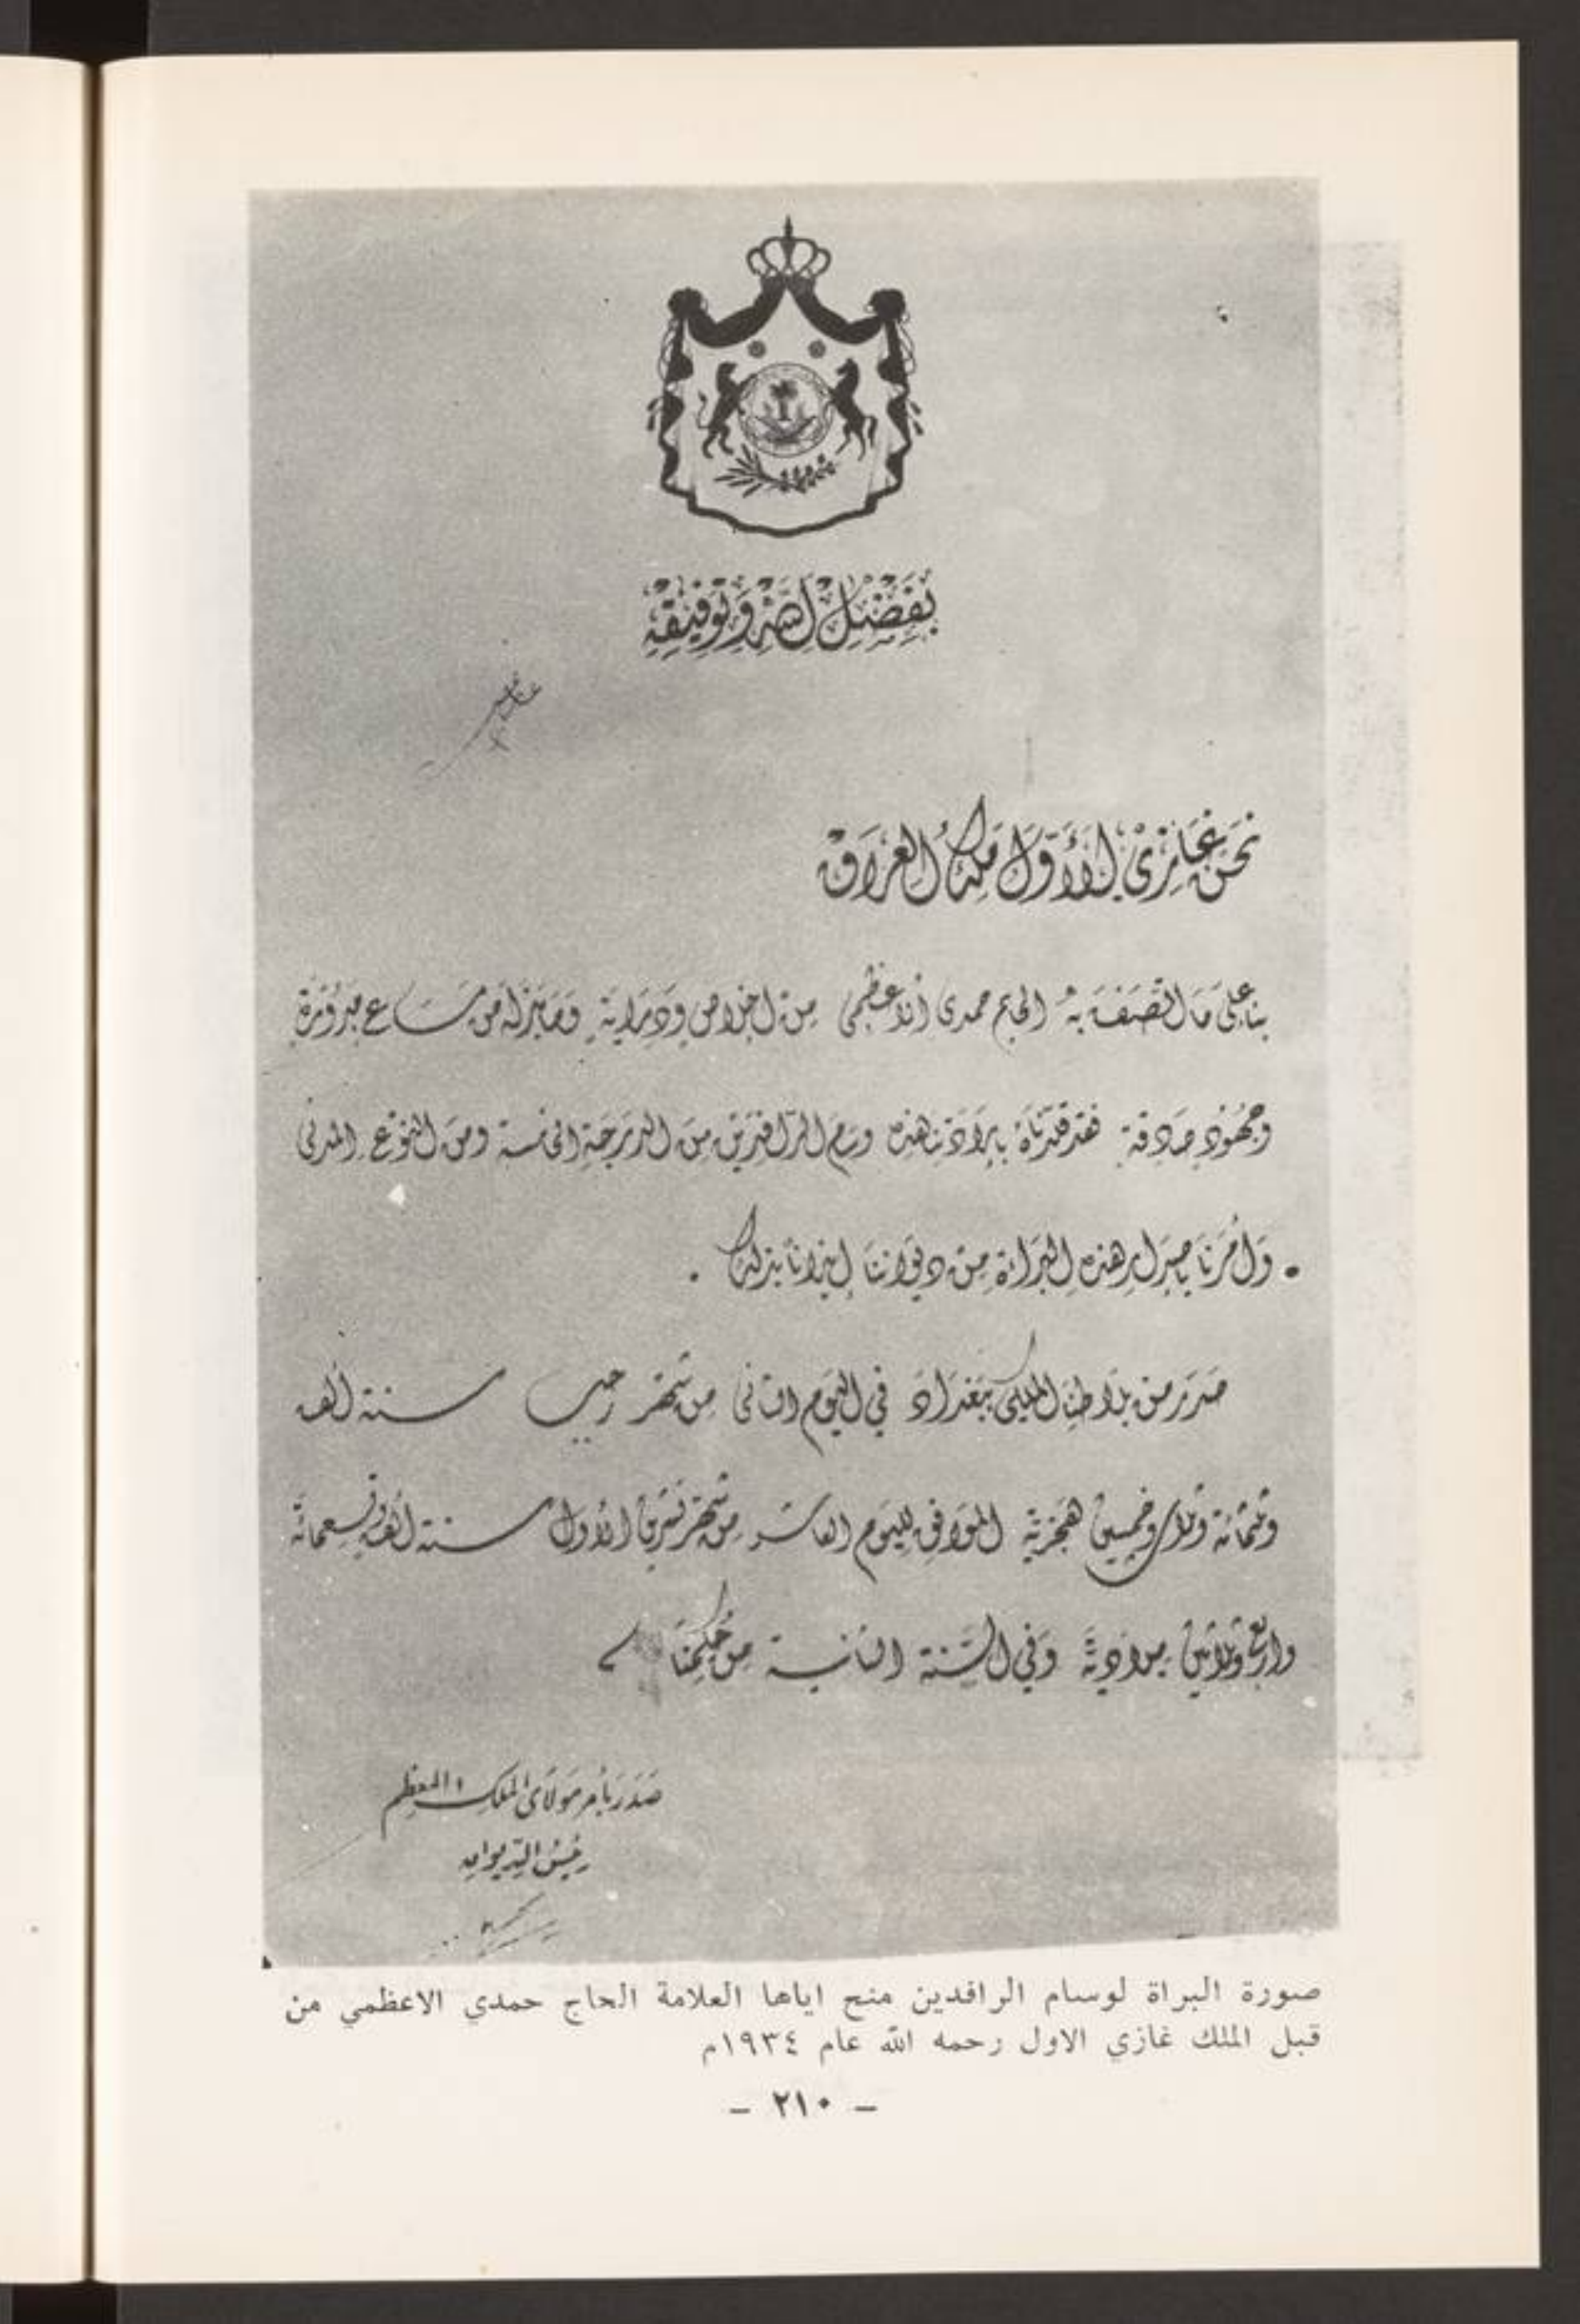 بفضل الله وتوفيقه
نحن غازي الأول ملك العراق
بناء على ما اتصف به الحاج حمدي الاعظمي من إخلاص ودراية وما بذله من مساع مبرورة
وجهود صادقة فقد قلدناه بإرادتنا هذه وسام الرافدين من الدرجة الخامسة ومن النوع المدني
. وأمرنا بإصدار هذه البراءة من ديواننا إيذانا بذلك .
صدر من بلاطنا الملكي ببغداد في اليوم الثاني من شهر رجب سنة ألف
وثلثمائة وثلاث وخمسين هجرية الموافق لليوم العاشر من شهر تشرين الأول سنة ألف وتسعمائة
واربع وثلاثين ميلادية وفي السنة الثانية من حكمنا
صدر بأمر مولاي الملك المعظم
رئيس الديوان
صورة البراة لوسام الرافدين منح اياها العلامة الحاج حمدي الاعظمي من
قبل الملك غازي الاول رحمه الله عام ١٩٣٤م
– ٢١٠ –